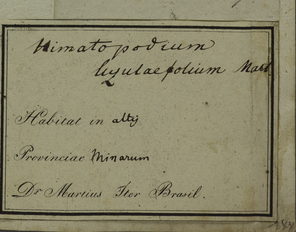 Himatopodium
ligulaefolium Mart
Habitat in altis
Provinciae Minarum
Dr Martius Iter Brasil.